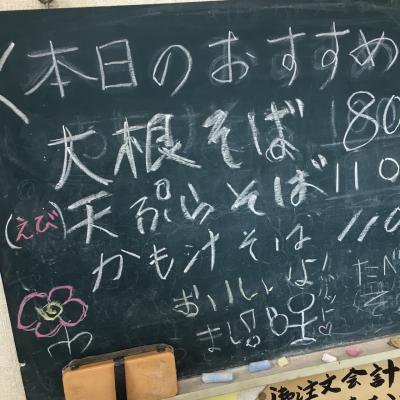 本日のおすすめ
大根そば 80
(えび)天ぷらそば 110
かも汁そば 110
おいしいよ!!
ました
御注文会計